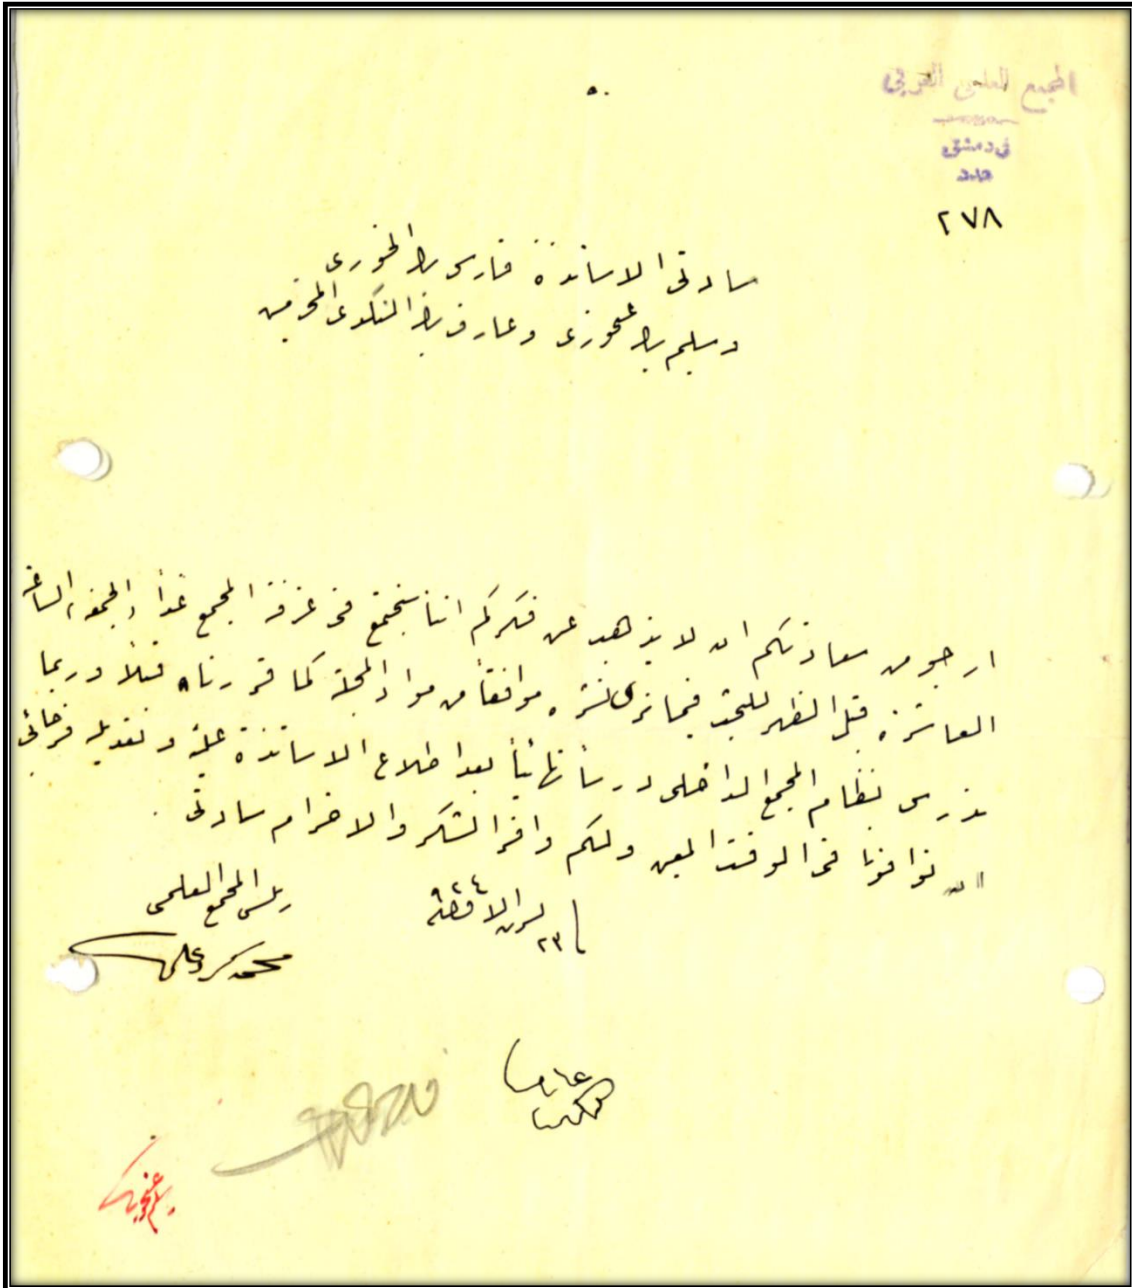 المجمع العلمي العربي
في دمشق
عدد
٢٧٨
سادتي الاساتذة فارس بك الخوري
وسليم بك عنحوري وعارف بك النكدي المحترمين
ارجو من سعادتكم ان لا يذهب عن فكركم اننا سنجتمع في غرفة المجمع غداً (الجمعة) الساعة
العاشرة قبل الظهر للبحث فيما نرى نشره موافقاً من مواد المجلة كما قررناه قبلاً وربما
ندرس نظام المجمع الداخلي درساً نهائياً بعد اطلاع الاساتذة عليه وتعديله فرجائي
ان توافونا في الوقت المعين ولكم وافر الشكر والاحترام سادتي .
رئيس المجمع العلمي
محمد كرد علي
٢٣
عارف النكدي
سليم عنحوري